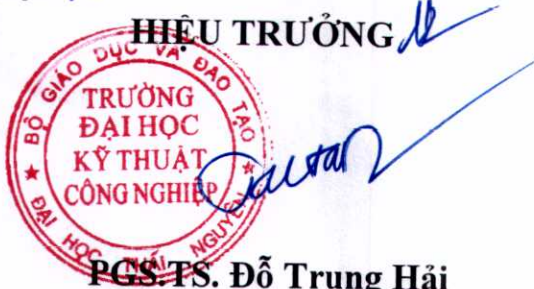 HIỆU TRƯỞNG
BỘ GIÁO DỤC VÀ ĐÀO TẠO
TRƯỜNG
ĐẠI HỌC
KỸ THUẬT
CÔNG NGHIỆP
ĐẠI HỌC THÁI NGUYÊN
PGS.TS. Đỗ Trung Hải